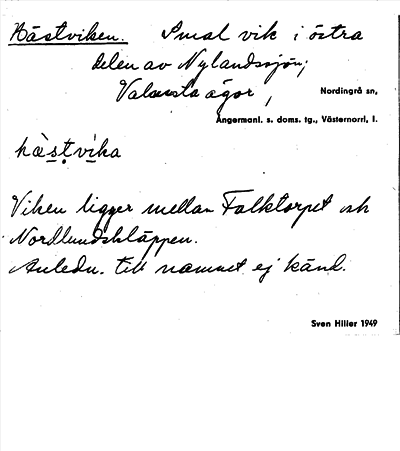 Hästviken. Smal vik i östra
delen av Nylandssjön;
Valasta ägor, Nordingrå sn,
Ångermanl. s. doms. tg., Västernorrl. l.
hàs̥t vìka
Viken ligger mellan Folktorpet och
Nordlundskläppen.
Anledn. till namnet ej känd.
Sven Hiller 1949